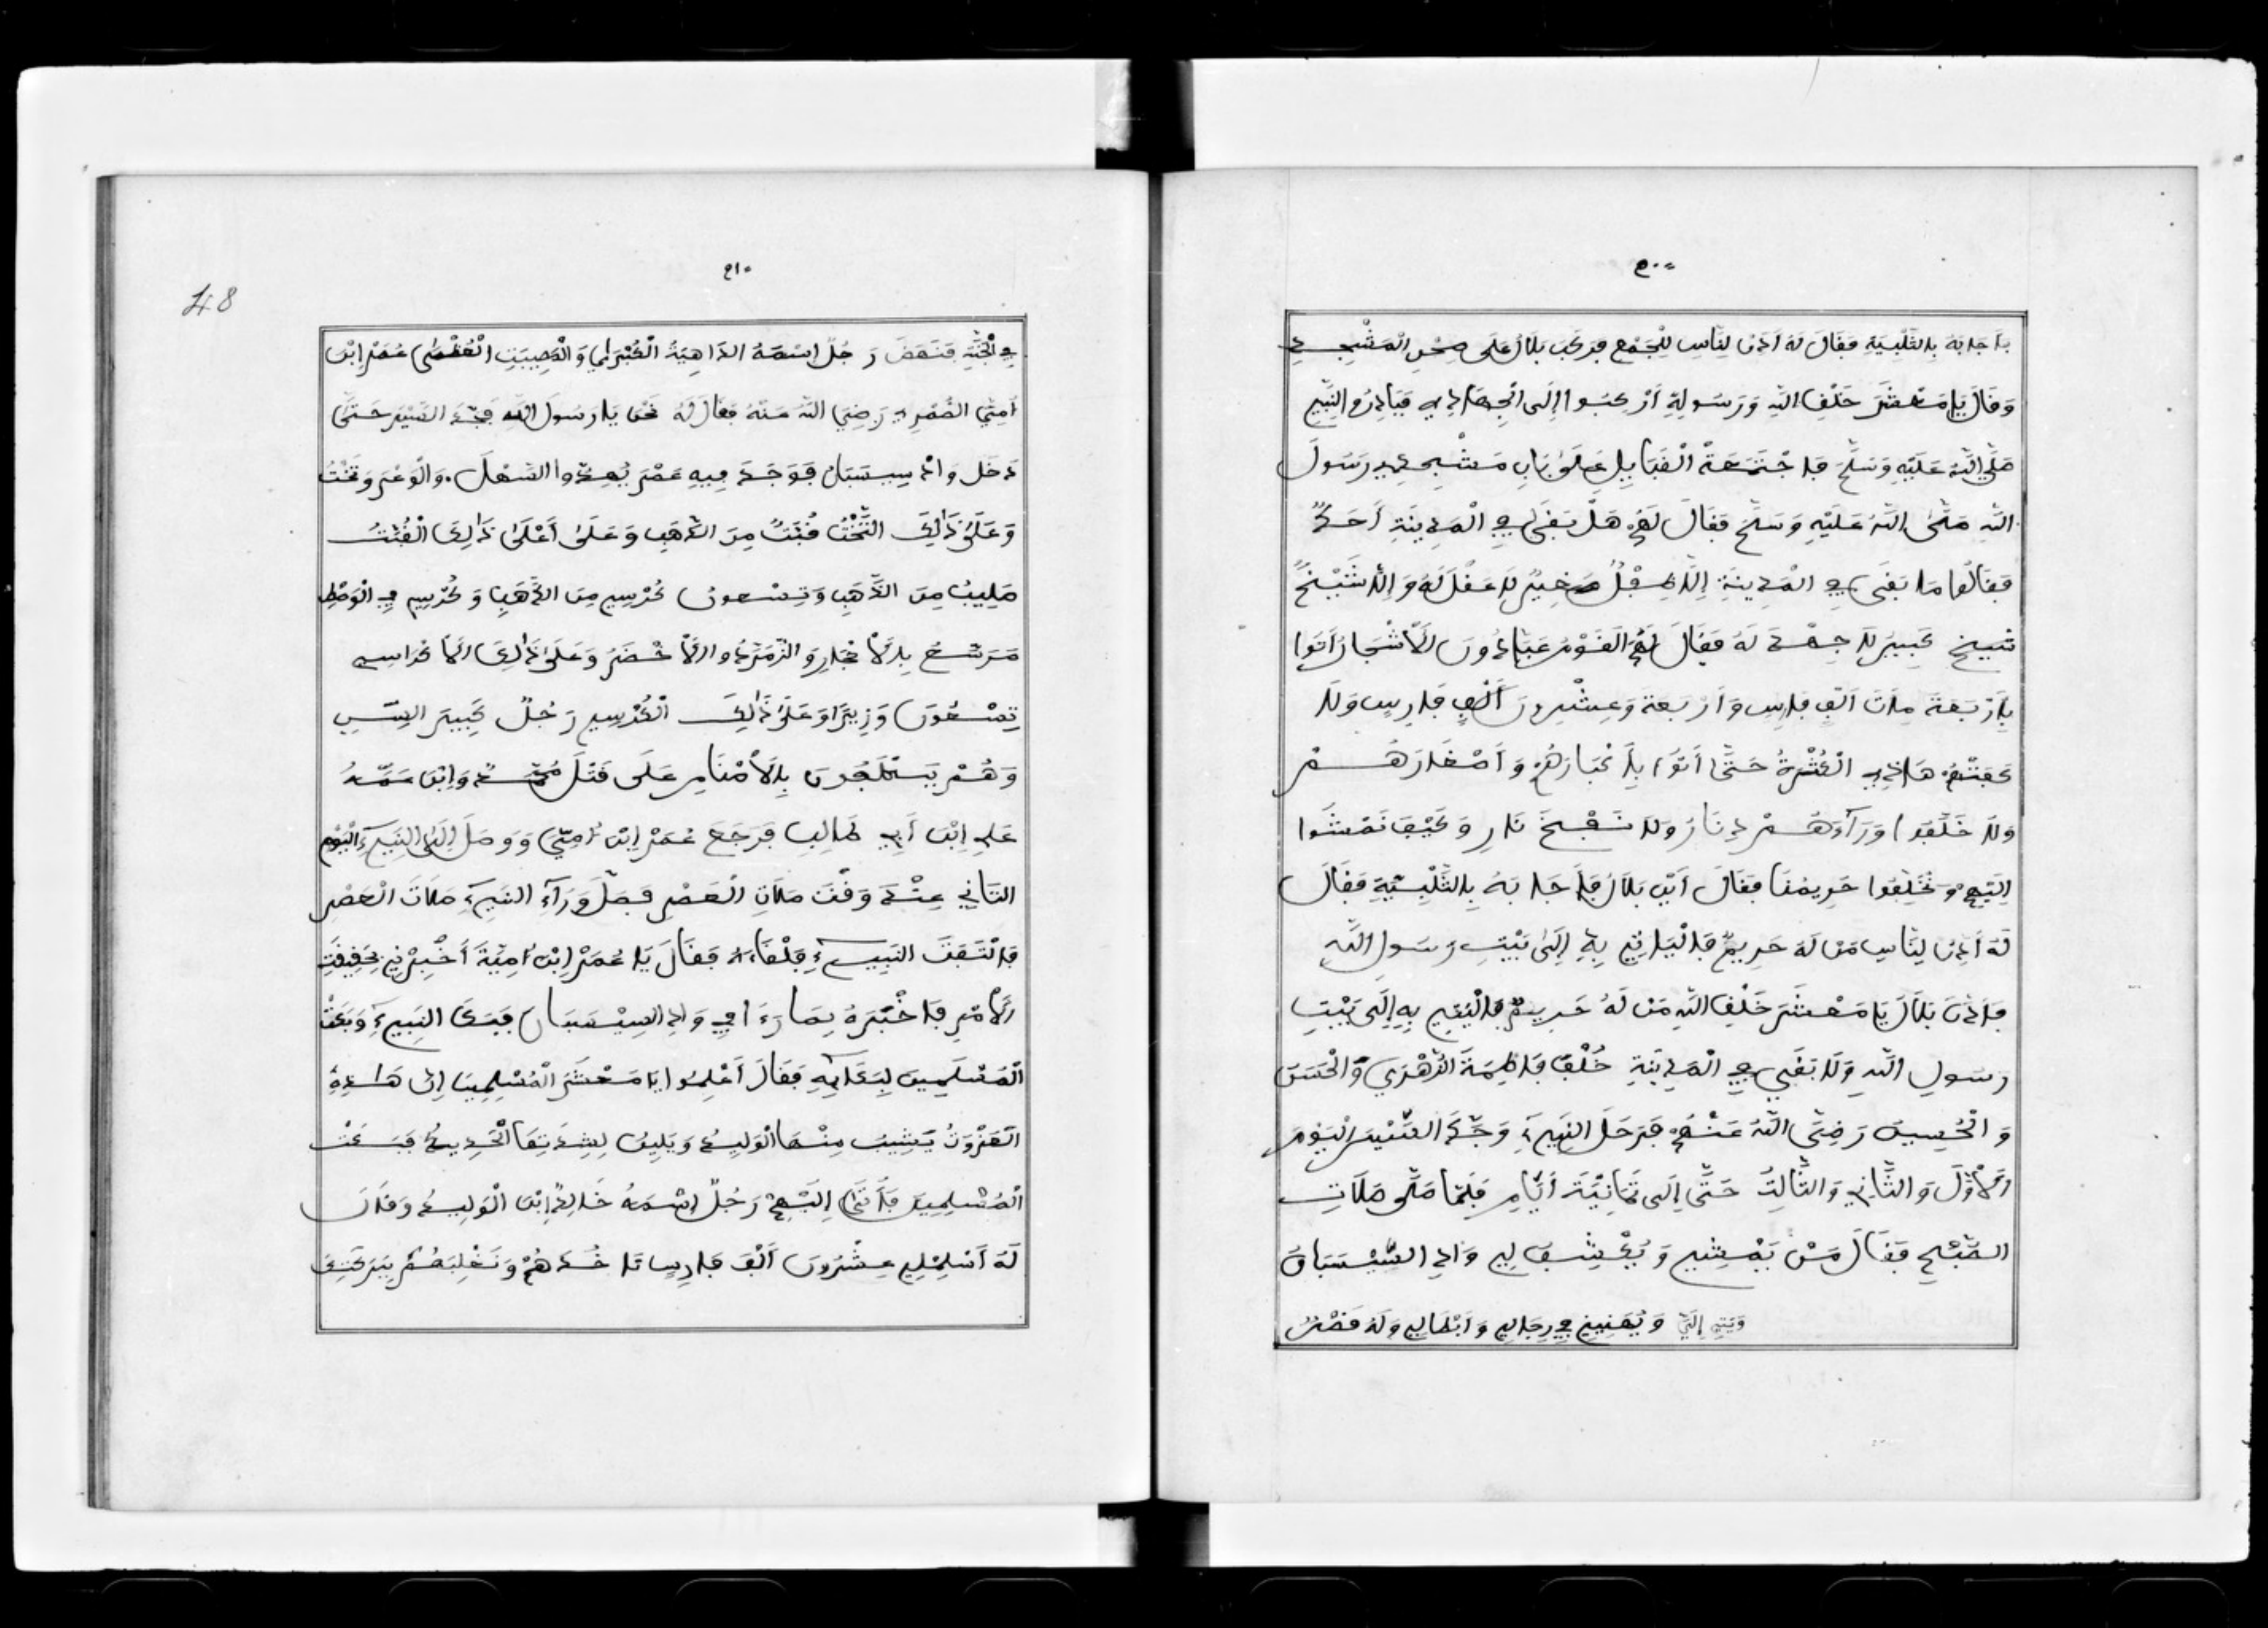 فَأَجَابَهُ بِالتَّلْبِيَةِ فَقَالَ لَهُ أَذِّنْ لِنَّاسِ لِلْجَمْعِ فَرَكَبَ بَلَالُ عَلَى صِحْنِ الْمَسْجِدِ
وَقَالَ يَا مَعْشَرَ خَلْقِ اللَّهِ وَرَسُولِهِ أَرْكَبُوا إِلَى الْجِهَادِ فَبَادِرُو النَّبِي
صَلَّى اللَّهُ عَلَيْهِ وَسَلَّمَ فَاجْتَمَعَةْ الْقَبَايِلِ عَلَى بَابِ مَسْجِدِ رَسُولَ
اللَّهِ صَلَّى اللَّهُ عَلَيْهِ وَسَلَّمَ فَقَالَ لَهُمْ هَلْ بَقَى فِي الْمَدِينَةِ أَحَدٌ
فَقَالُوا مَا بَقَى فِي الْمَدِينَةِ إِلَّا طِفْلٌ صَغِيرٌ لَا عَقْلَ لَهُ وَإِلَّا شَيْخٌ
شيخ كَبِيرَ لَا جِهْدَ لَهُ فَقَالَ لَهُمُ الْقَوْمُ عَبَّادُونَ الْأَشْجَارُ أَتَوْا
بِأَرْبَعَةَ مِاتَ أَلْفِ فَارِسٍ وَأَرْبَعَةَ وَعِشْرِينَ أَلْفٍ فَارِسٍ وَلَا
كَفَتْهُمْ هَاذِهِ الْكُثْرَةُ حَتَّى أَتَوْا بِأَكْبَارَهُمْ وَأَصْغَارَهُمْ
وَلَا خَلَّفُوا وَرَآءَهُمْ دِنَارَ وَلَا نَفْخَ نَارِ وَكَيْفَ نَمْشُوا
إِلَيْهِمْ وَنُخَلِّفُوا حَرِيمُنَا فَقَالَ أَيْنَ بَلَالُ فَأَجَابَهُ بِالتَّلْبِيَّةِ فَقَالَ
لَهُ أَذِّنْ لِنَّاسِ مَنْ لَهُ حَرِيمٌ فَالْيَاتِي بِهِ إِلَى بَيْتِ رَسُولِ اللَّهِ
فَأَذَّنَ بَلَالَ يَا مَعْشَرَ خَلْقِ اللَّهِ مَنْ لَهُ حَرِيمٌ فَالْيَتِي بِهِ إِلَى بَيْتِ
رَسُولِ اللَّهِ وَلَا بَقَى فِي الْمَدِينَةِ خُلْفَ فَاطِمَةَ الزُّهْرِي وَالْحَسَنَ
وَالْحُسِينَ رَضِيَ اللَّهُ عَنْهُمْ فَرَحَلَ النَّبِيءَ وَجَّدَ السَّيْرَ الْيَوْمَ
الْأَوَّلَ وَالثَّانِي وَالثَّالِثَ حَتَّى إِلَى ثَمَانِيَّةَ أَيَّامِ فَلَمَّا صَلَّى صَلَاتِ
الصُّبْحِ فَقَالَ مَنْ يَمْشِي وَيُكْشِفْ لِي وَادِ السَّيْسَبَانْ
وَيَتِي إِلَيَّ وَيُهَنِينِي فِي رِجَالِي وَأَبْطَالِي وَلَهُ قَصْرٌ
٤٨
فِي الْجَنَّةِ فَنَهَضَ رَجُلٌ إِسْمَهُ الدَّاهِيَةُ الْكُبْرَى وَالْمُصِيبَتِ الْعُظْمَى عُمَرْ إِبْنَ
أُمِيَّ الضُّمْرِي رَضِيَ اللَّهُ عَنْهُ فَقَالَ لَهُ نَحْنُ يَا رَسُولَ اللَّهِ فَجَّدَ السَّيْرَ حَتَّى
دَخَلَ وَادْ سِيسَبَانْ فَوَجَدَ فِيهِ عَمْرَ السَّهْلَ وَالْوَعْرَ وَتَخْتُ
وَعَلَى ذَالِكَ التَّخْتُ قُبَّتٌ مِنَ الذَّهَبِ وَعَلَى أَعْلَى ذَالِكَ الْقُبَّتُ
صَلِيبٌ مِنَ الذَّهَبِ وَتِسْعُونَ كُرْسِي مِنَ الذَّهَبِ وَكُرْسِي فِي الْوَسْطِ
مَرَسَّعْ بِالْأَحْجَارِ وَالزُّمُرُّدِ الْأَخْضَرُ وَعَلَى ذَالِكَ الْأَكْرَاسِي
تِسْعُونَ وَزِيرًا وَعَلَى ذَالِكَ الْكُرْسِي رَجُلٌ كَبِيرَ السِّنِ
وَهُمْ يَسْتَلْجُونَ بِالْأَصْنَامِ عَلَى قَتْلَ مُحَمَّدٍ وَإِبْنَ عَمِّهُ
عَلِي إِبْنَ أَبِي طَالِبِ فَرَجَعَ عُمَرْ إِبْنَ أُمِيَّ وَوَصَلَ إِلَى النَّبِيءِ الْيَوْمِ
الثَّانِي عِنْدَ وَقْتَ صَلَاتِ الْعَصْرِ فَصَلَّ وَرَآءِ النَّبِيءِ صَلَاتَ الْعَصْرِ
فَالْتَفَتَ النَّبِيءُ فَلْقَاهُ فَقَالَ يَا عُمَرْ إِبْنَ أُمِيَّةَ أَخْبِرْنِي بِحَقِيقَتِ
الْأَمْرِ فَأَخْبَرَهُ بِمَا رَءَا فِي وَادِ السِّيْسَبَانَ فَبَكَى النَّبِيءَ وَبَكَتْ
الْمُسْلِمِينَ لِبَكَايِهِ فَقَالَ أَعْلِمُوا يَا مَعْشَرَ الْمُسْلِمِينَ إِنَّ هَاذِهِ
الْغَزْوَتُ يَشِيبْ مِنْهَا الْوَلِيدْ وَيَلِينْ لِشِدَتِهَا الْحَدِيدْ فَبَكَتْ
الْمُسْلِمِينَ فَأَتَى إِلَيْهِمْ رَجُلٌ إِسْمَهُ خَالِدْ إِبْنَ الْوَلِيدْ وَقَالَ
لَهُ أَسْلِمْلِي عِشْرُونَ أَلْفَ فَارِسٍ نَاخُدَهُمْ وَنَغْلِبَهُمْ بِبَرَكَتِكَ